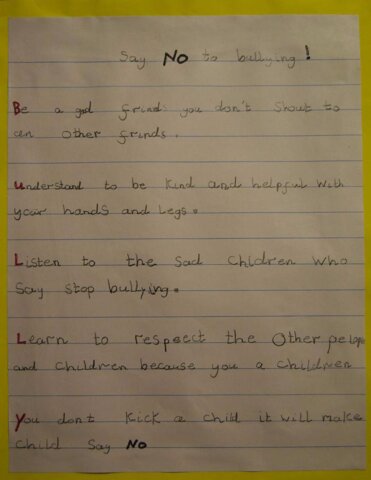 Say NO to bullying!
Be a god frinds you don't shout to
an other frinds.
understand to be kind and helpful with
your hands and legs.
Listen to the sad children who
Say stop bullying.
Learn to respect the Other pelope
and children because you a children
You dont kick a child it will make
child say NO